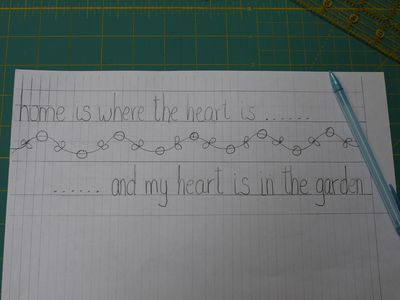 home is where the heart is ......
...... and my heart is in the garden